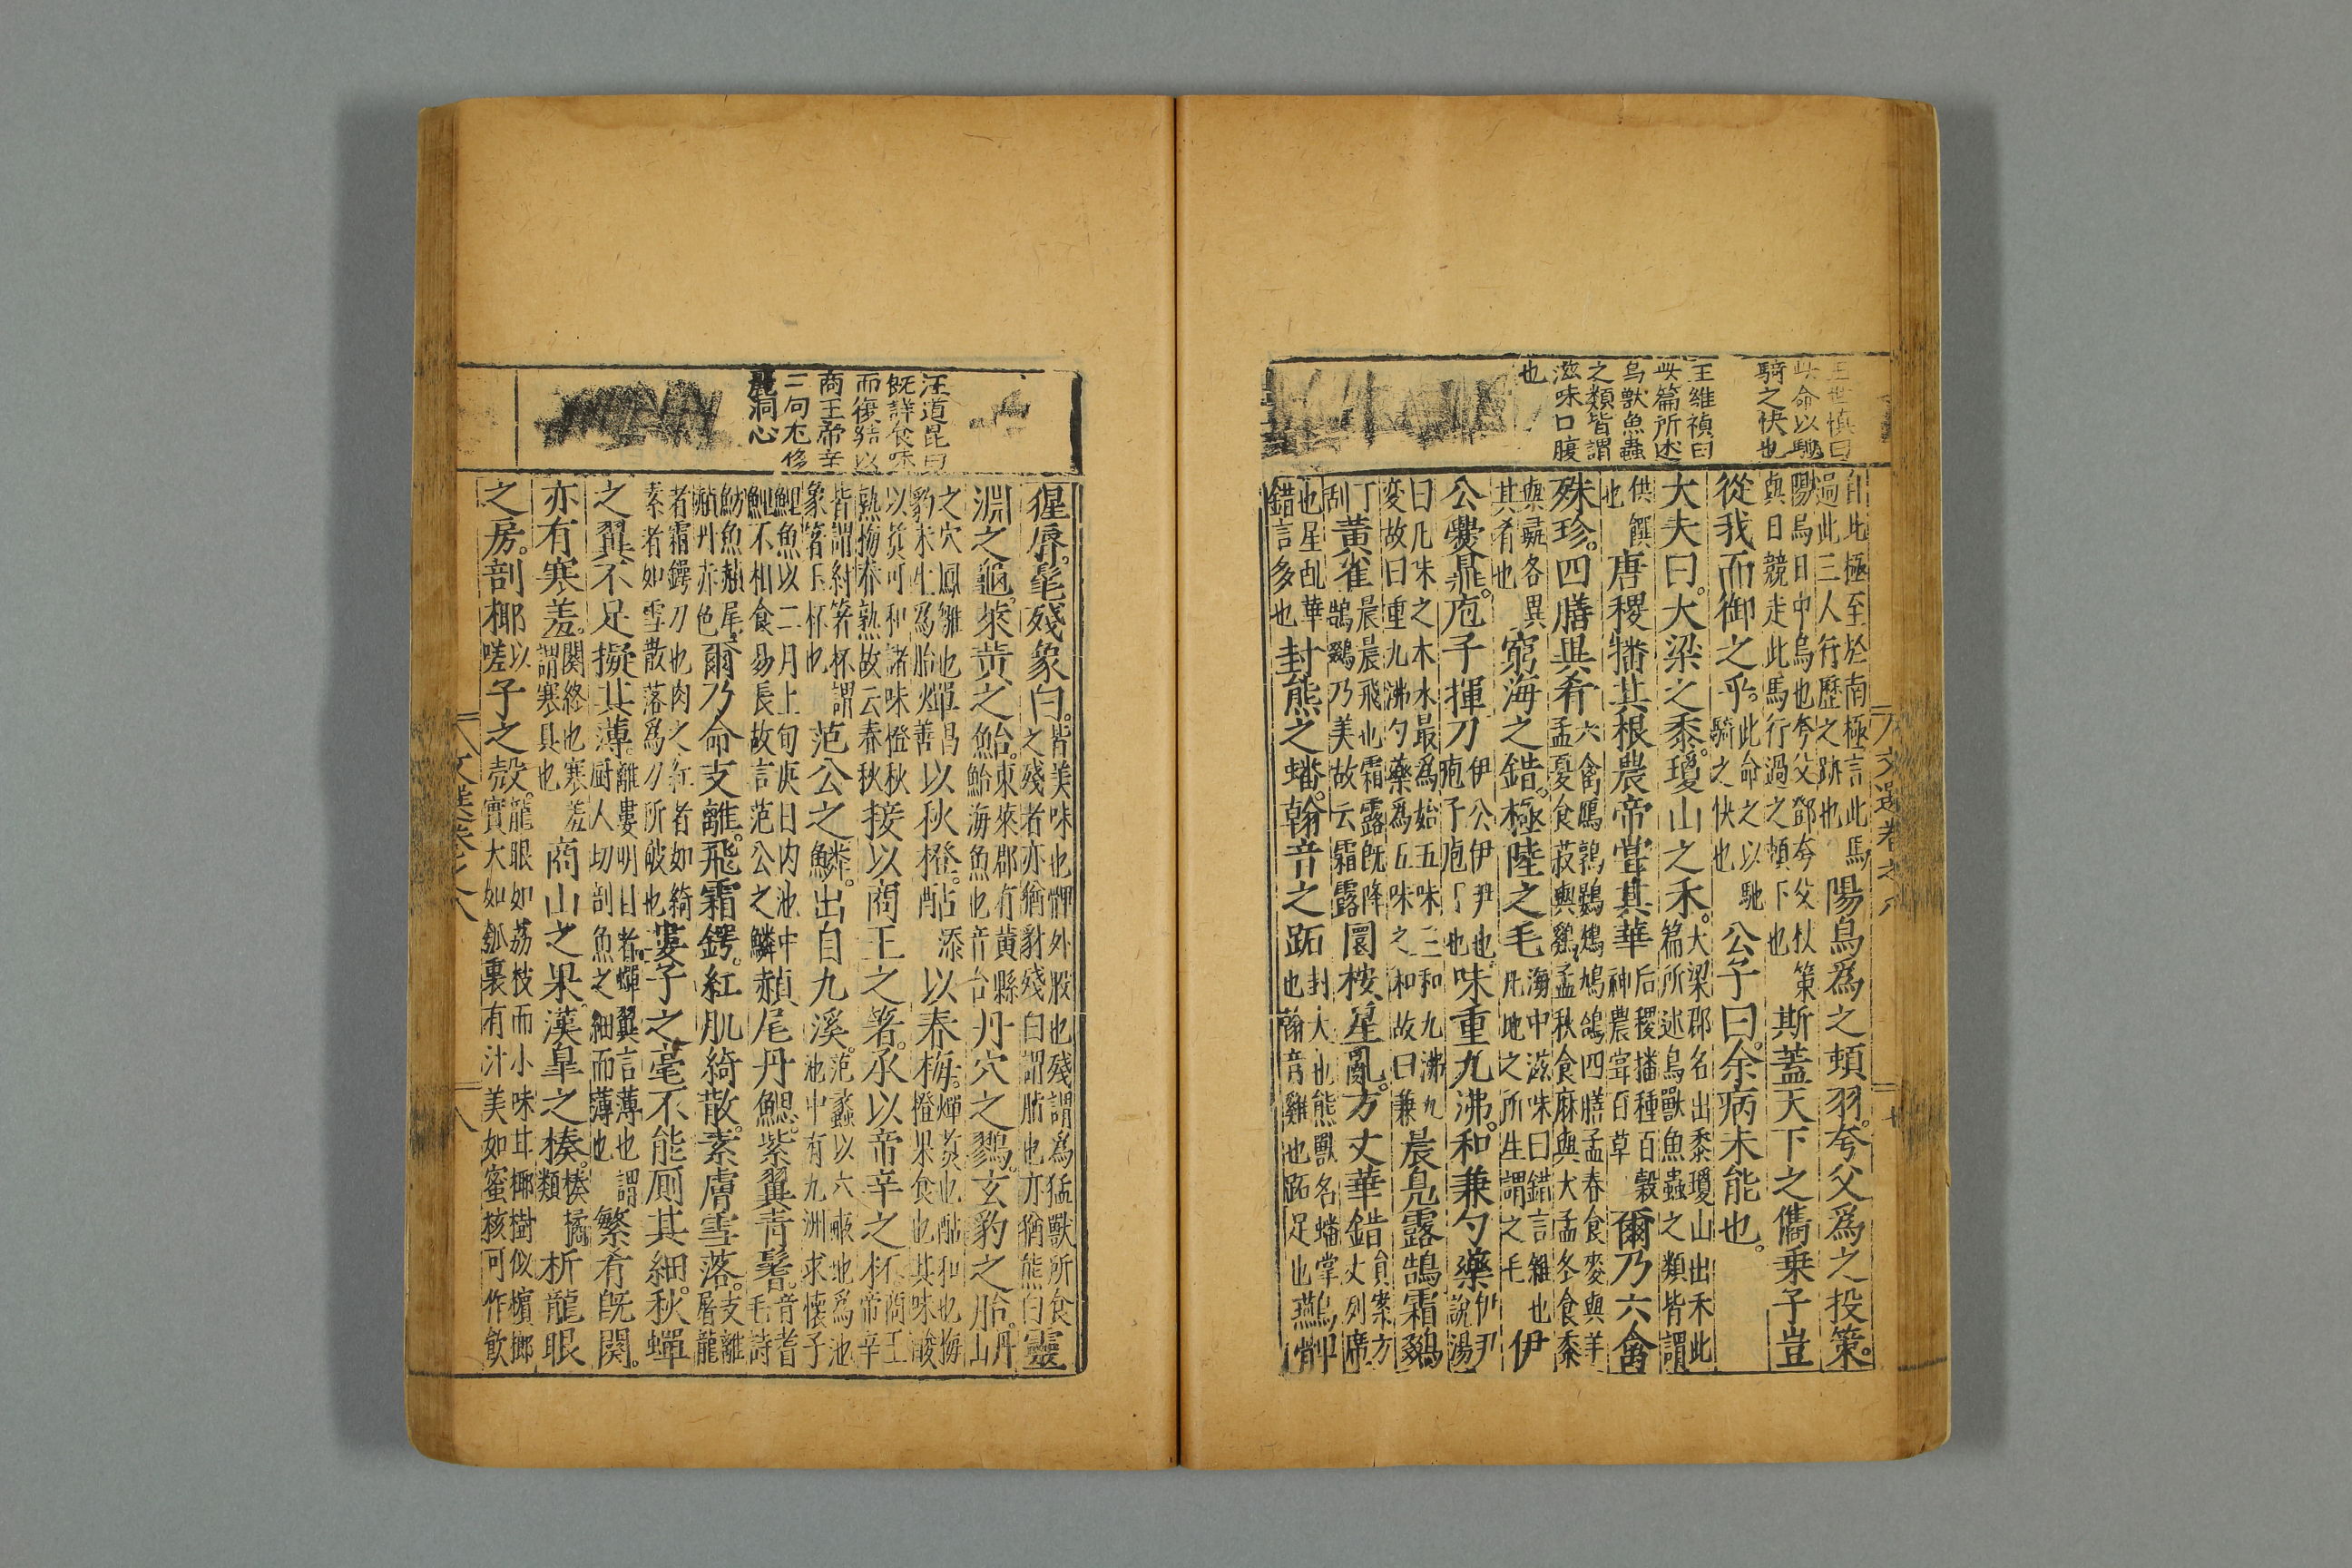 王世慎曰
此命以馳
騎之快也
王維禎曰
此篇所述
鳥獸魚蟲
之類皆謂
滋味口腹
也
自北極至於南極言此馬
過此三人行歷之跡也
陽烏爲之頓羽。夸父爲之投策。
陽烏日中烏也夸父鄧夸父杖策
與日競走此馬行過之頓下也
斯蓋天下之儁乗子豈
從我而御之乎。
此命之以馳
騎之快也
公子曰。余病未能也。
大夫曰。大梁之黍。瓊山之禾。
大梁郡名出黍瓊山出禾此
篇所述鳥獸魚蟲之類皆謂
供饌
也
唐稷播其根農帝甞其華
后稷播種百穀
神農甞百草
爾乃六禽
殊珍。四膳異肴
六禽鴈鶉鷃鳩鴿四膳孟春食麥與羊
孟夏食菽與雞孟秋食麻與大孟冬食黍
與彘各異
其肴也
窮海之錯。極陸之毛
海中滋味曰錯言雜也
凡地之所生謂之毛
伊
公爨鼎。庖子揮刀
伊公伊尹也
庖子庖丁也
味重九沸。和兼勺藥
伊尹
說湯
曰凡味之木水最爲始五味三和九沸九
変故曰重九沸勺藥爲五味之和故曰兼
晨鳧露鵠霜鵽
丁
刮
黄雀
晨晨飛也霜露旣降
鵠鵽乃美故云霜露
圜桉星亂。方丈華錯
員案方
丈列席
也星乱華
錯言多也
封熊之蹯。翰音之跖
封大也熊獸名蹯掌
也翰音雞也跖足也
燕髀
猩脣。髦殘象白。
皆美味也髀外股也殘謂爲猛獸所食
之殘者亦猶豺殘白謂脂也亦猶熊白
靈
淵之龜。萊黄之鮐。
東來郡有黄縣
鮐海魚也音台
丹穴之鷚。玄豹之胎。
丹
山
之穴鳳雛也
豹未生爲胎
燀
昌
善
以秋橙。酟
添
以春梅。
燀炙也酟和也梅
橙果食也其味酸
以炙可和諸味橙秋
熟梅春熟故云春秋
接以商王之箸。承以帝辛之杯。
商王
帝辛
皆謂紂箸杯謂
象箸玉杯也
范公之鱗。出自九溪。
范蠡以六畝地爲池
池中有九洲求懐子
鯉魚以二月上旬庚日内池中
鯉不相食易長故言范公之鱗
赬尾丹鰓。紫翼青鬐。
音耆
毛詩
魴魚赬尾
赬丹亦色
爾乃命支離。飛霜鍔。紅肌綺散。素膚雪落。
支離
屠龍
者霜鍔刀也肉之紅者如綺
素者如雪散落爲刀所破也
婁子之毫不能厠其細。秋蟬
之翼不足擬其薄。
離婁明目者蟬翼言薄也謂
厨人切剖魚之細而薄也
繁肴旣闋。
亦有寒羞。
闋終也寒羞
謂寒具也
商山之果。漢皐之楱。
楱橘
類
析龍眼
之房。剖椰
以
嗟
子之殼。
龍眼如荔枝而小味甘椰樹似檳榔
實大如瓠裏有汁美如蜜核可作飲
汪道昆曰
旣詳食味
而復結以
商王帝辛
二句尤侈
麗洞心
文選卷之八
八